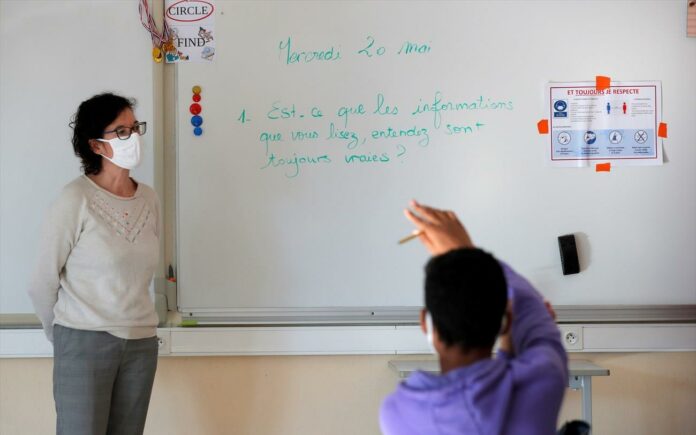 CIRCLE
FIND
Mercredi 20 mai
1. Est-ce que les informations
que vous lisez, entendez sont
toujours vraies ?
ET TOUJOURS JE RESPECTE